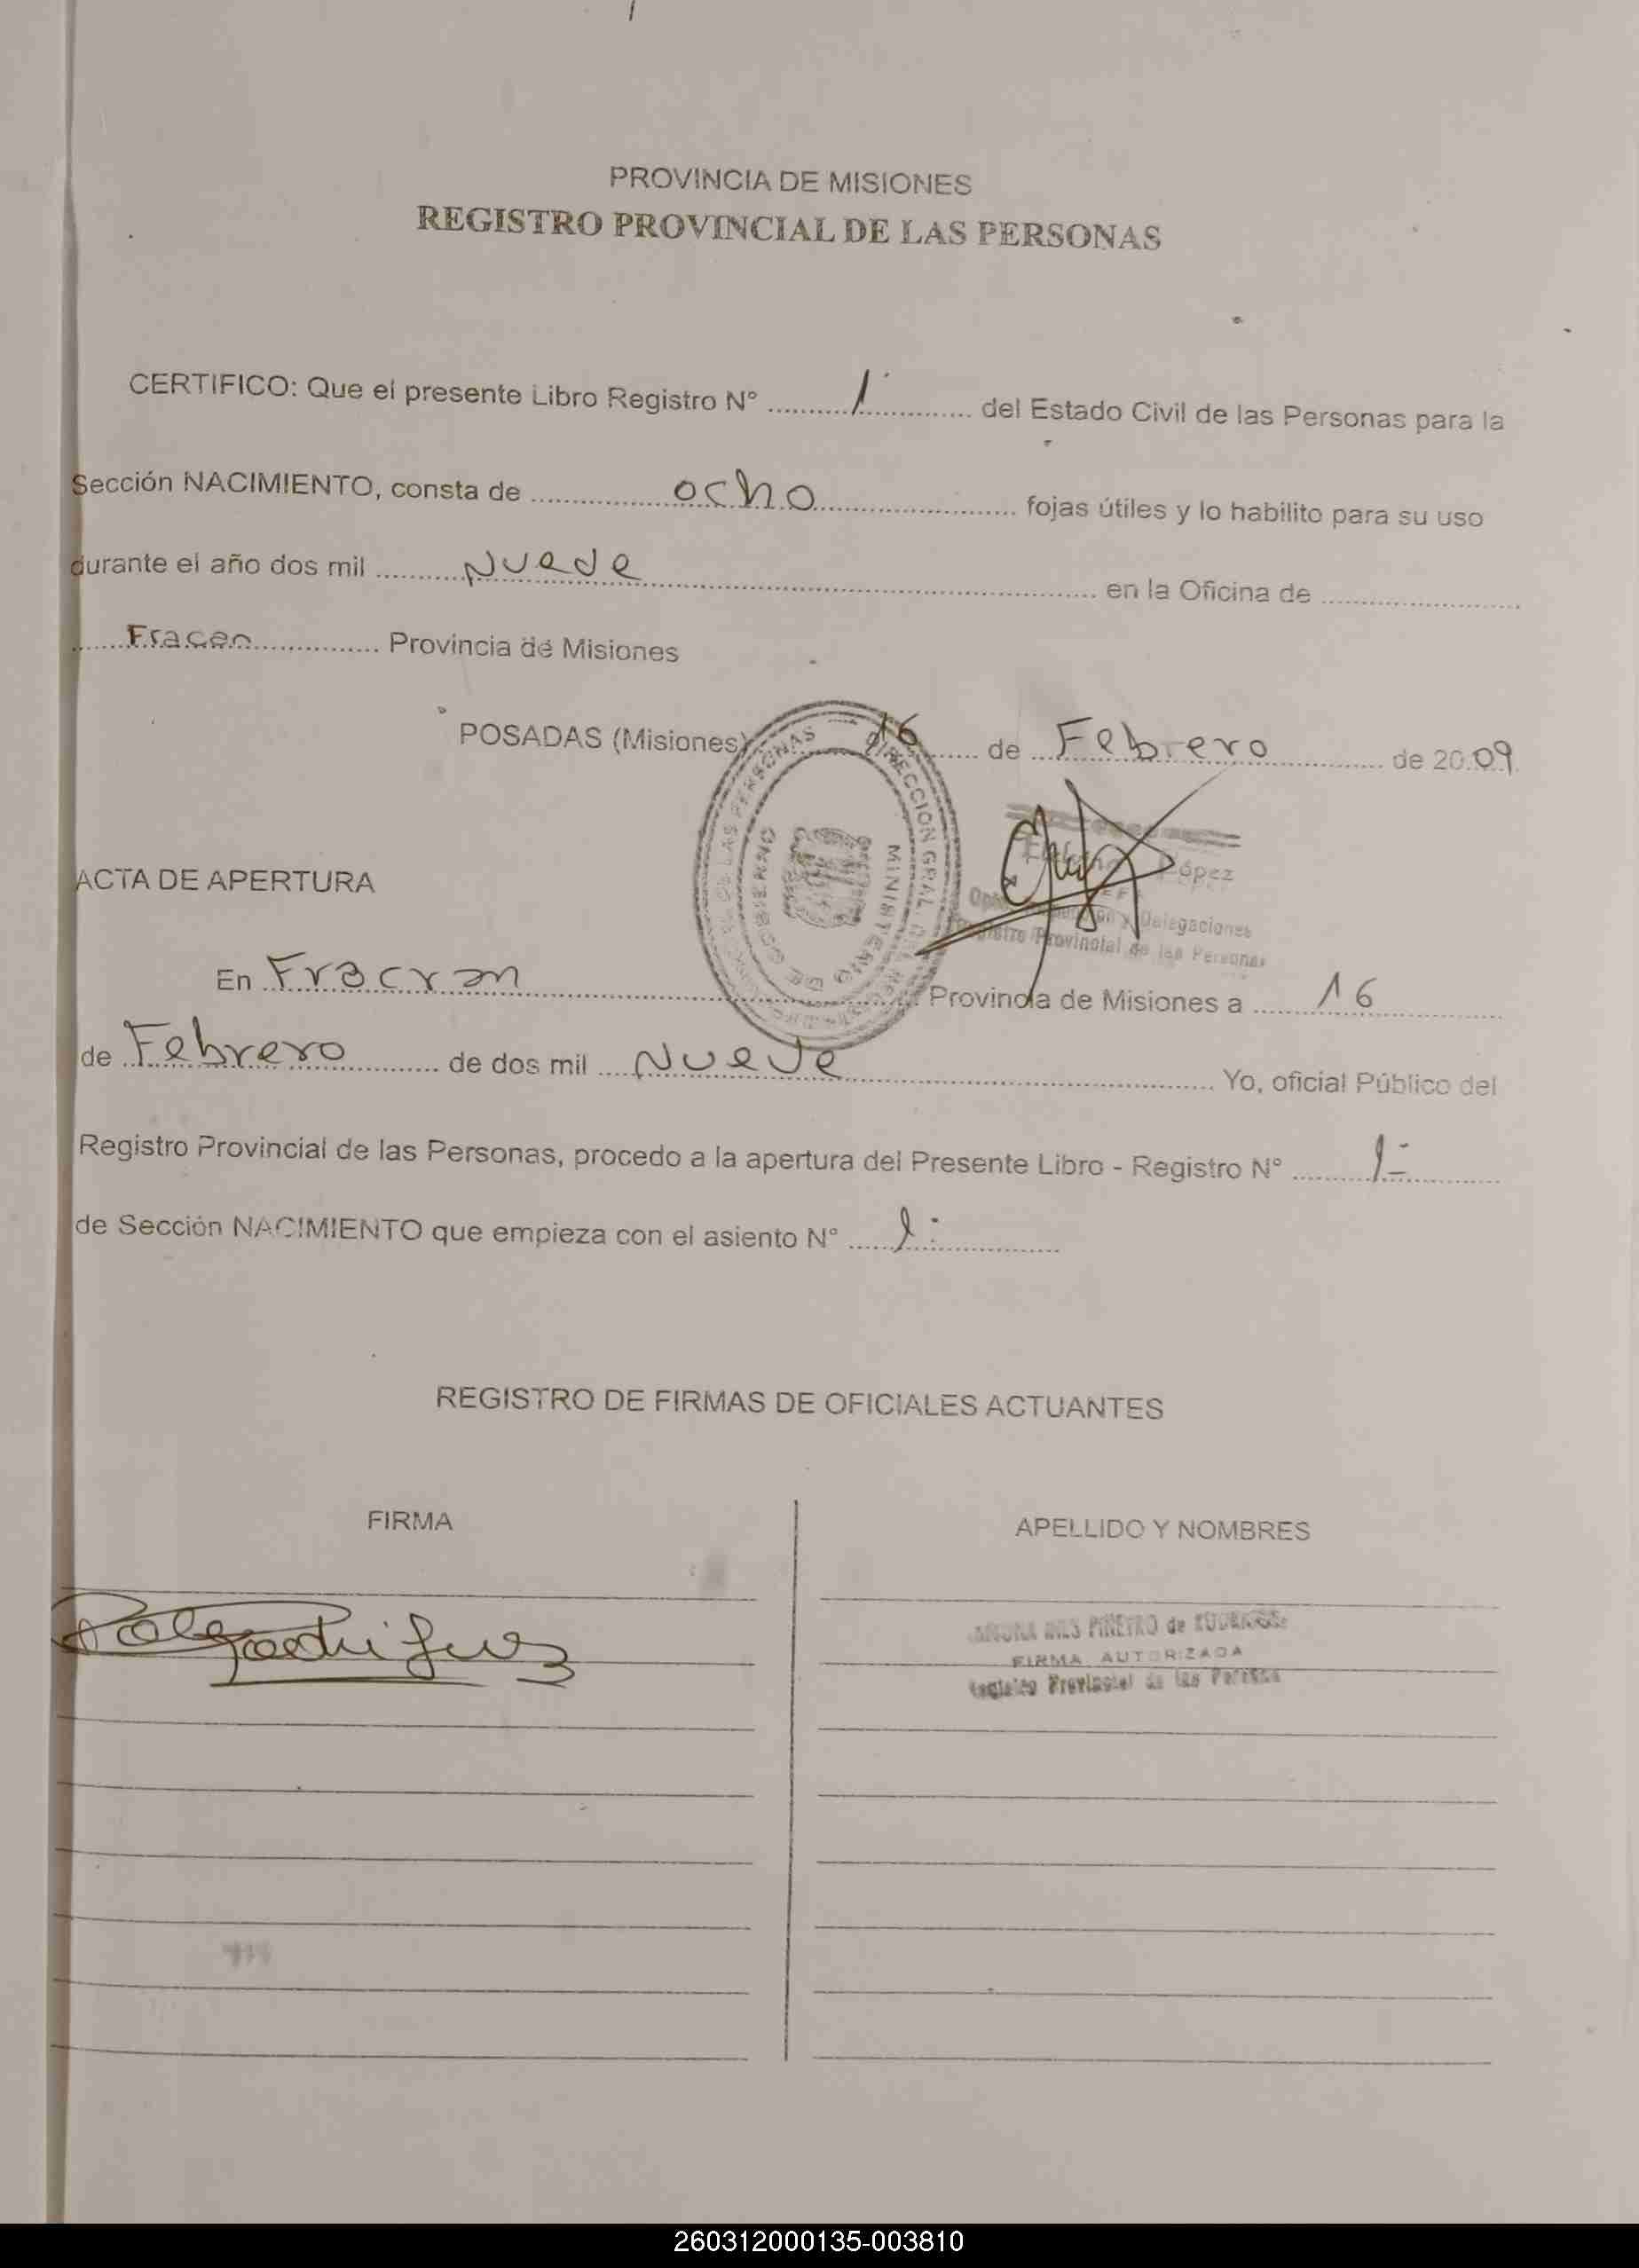 PROVINCIA DE MISIONES
REGISTRO PROVINCIAL DE LAS PERSONAS
CERTIFICO: Que el presente Libro Registro N° 1 del Estado Civil de las Personas para la
Sección NACIMIENTO, consta de ocho fojas útiles y lo habilito para su uso
durante el año dos mil Nueve en la Oficina de
Fracan Provincia de Misiones
POSADAS (Misiones) 16 de Febrero de 2009
López
Delegaciones
Registro Provincial de las Personas
DIRECCION GRAL. DEL REGISTRO DE LAS PERSONAS
MINISTERIO DE GOBIERNO
ACTA DE APERTURA
En Fracran Provincia de Misiones a 16
de Febrero de dos mil Nueve Yo, oficial Público del
Registro Provincial de las Personas, procedo a la apertura del Presente Libro - Registro N° 1-
de Sección NACIMIENTO que empieza con el asiento N° 1-
REGISTRO DE FIRMAS DE OFICIALES ACTUANTES
FIRMA
APELLIDO Y NOMBRES
PIÑEYRO de RODRIGUEZ
FIRMA AUTORIZADA
Registro Provincial de las Personas
260312000135-003810